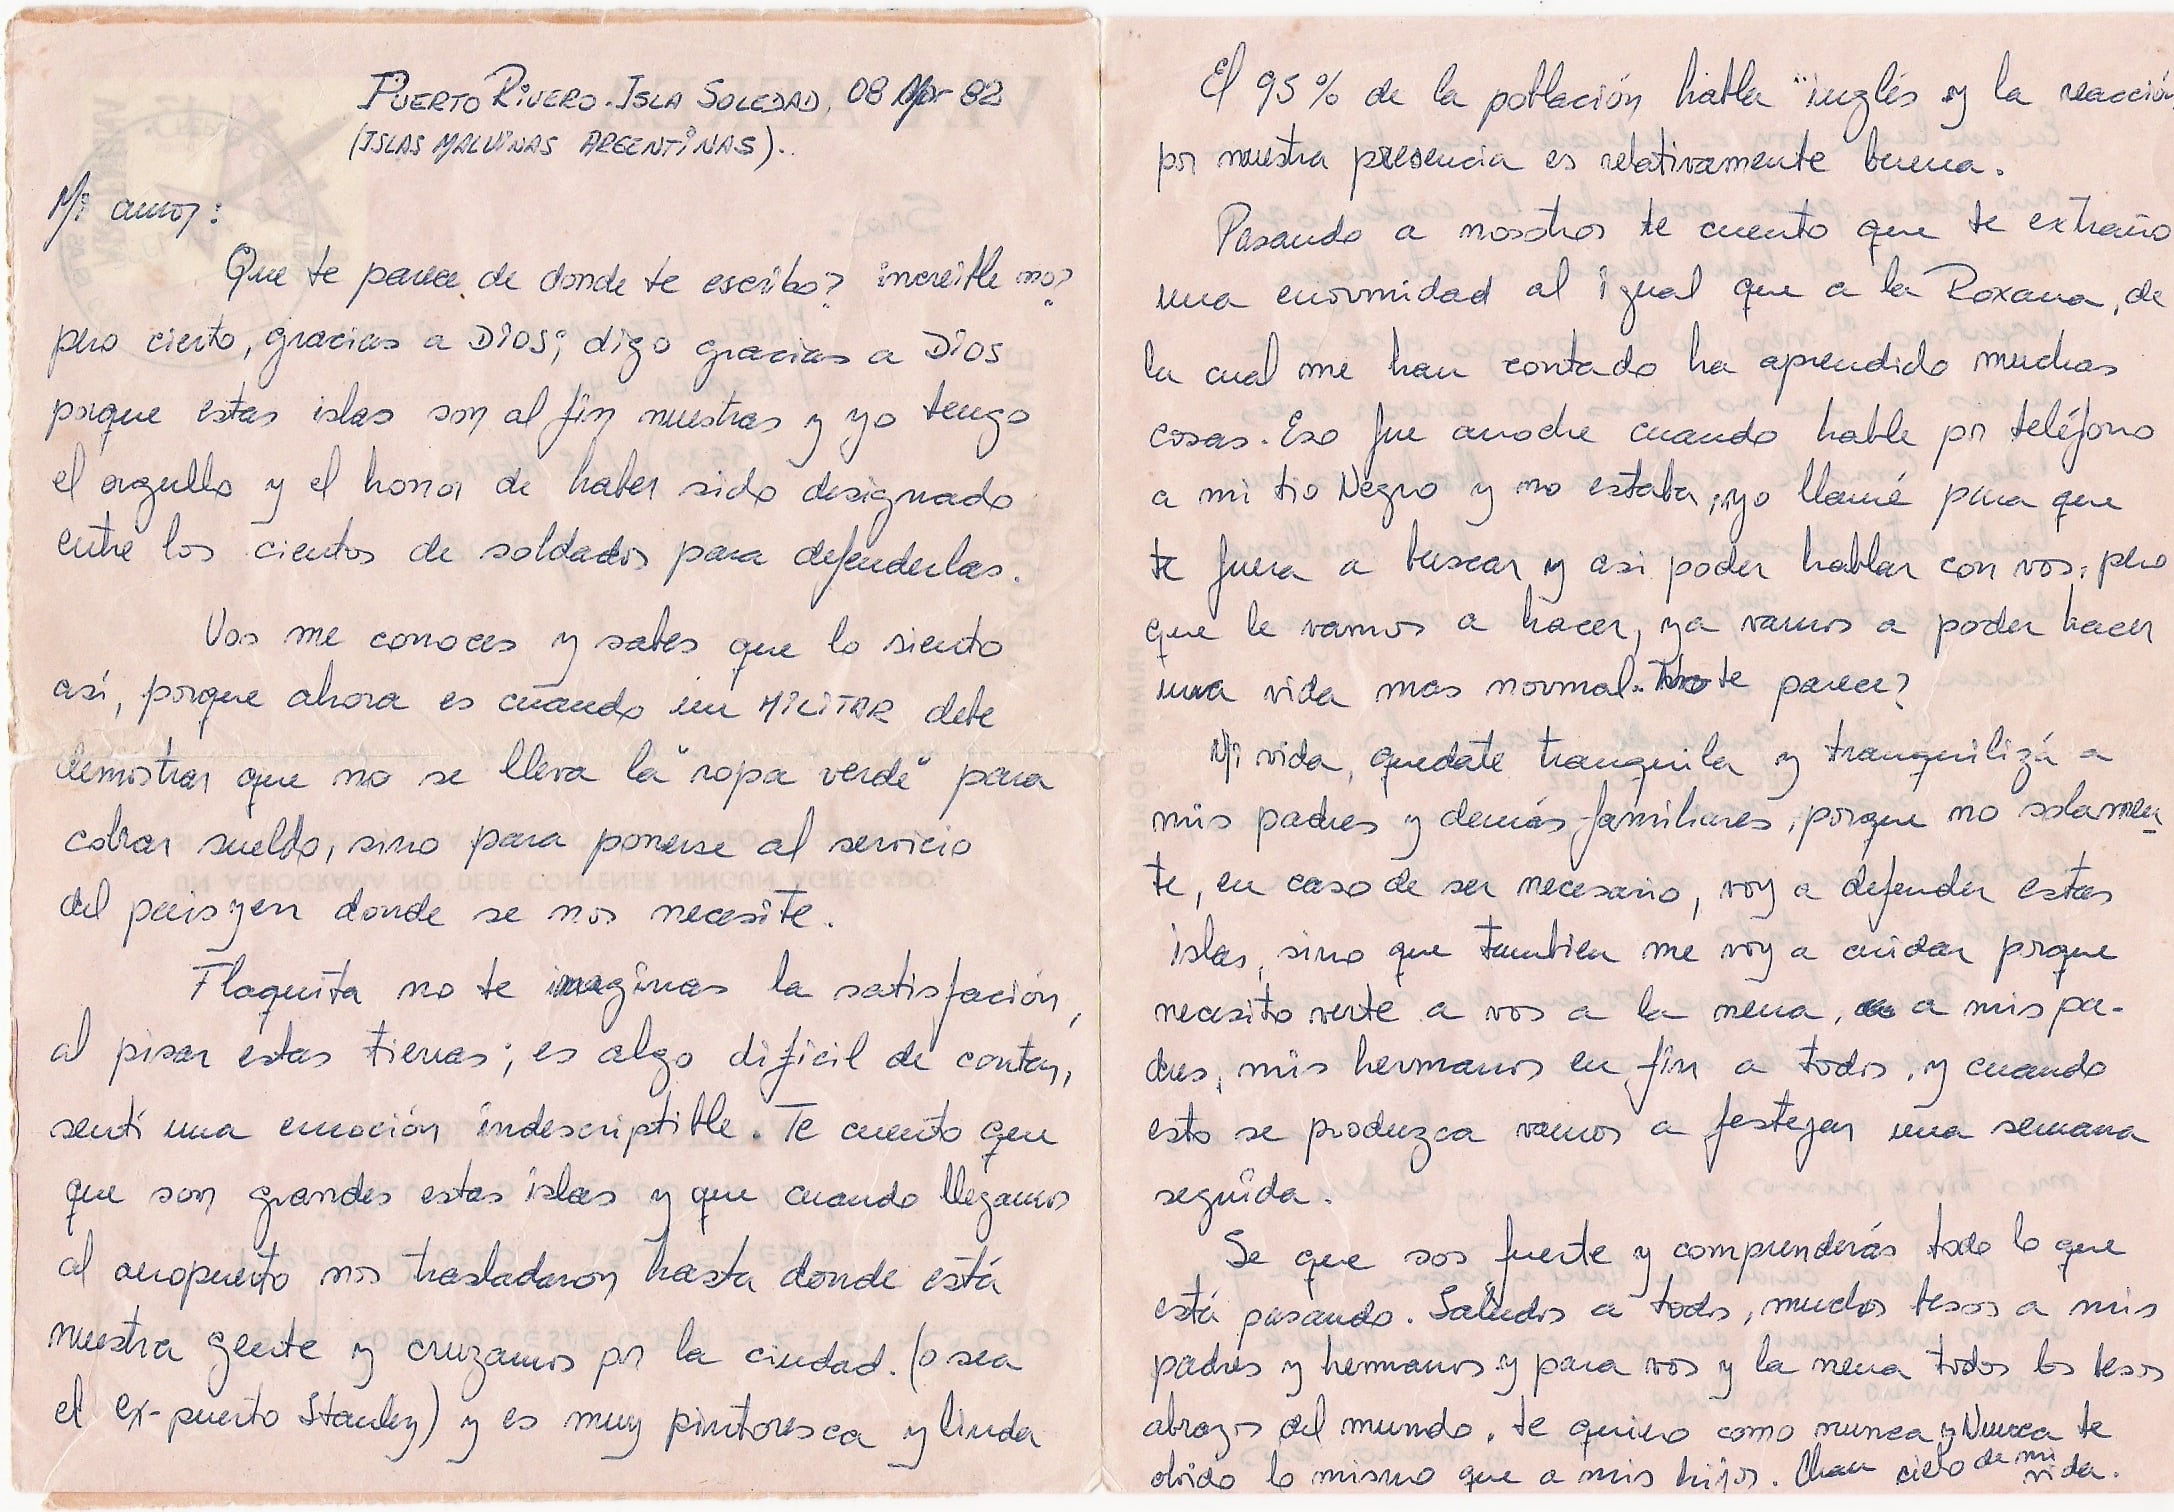 PUERTO RIVERO. ISLA SOLEDAD, 08 Apr 82
(ISLAS MALVINAS ARGENTINAS)..
Mi amor:
Que te parece de donde te escribo? increible no?
pero cierto, gracias a DIOS; digo gracias a DIOS
porque estas islas son al fin nuestras y yo tengo
el orgullo y el honor de haber sido designado
entre los cientos de soldados para defenderlas.
Vos me conoces y sabes que lo siento
así, porque ahora es cuando un MILITAR debe
demostrar que no se lleva la "ropa verde" para
cobrar sueldo, sino para ponerse al servicio
del pais y en donde se nos necesite.
Flaquita no te imaginas la satisfación,
al pisar estas tierras; es algo dificil de contar,
sentí una emoción indescriptible. Te cuento que
que son grandes estas islas y que cuando llegamos
al aeropuerto nos trasladaron hasta donde está
nuestra gente y cruzamos por la ciudad. (o sea
el ex-puerto Stanley) y es muy pintoresca y linda
El 95% de la población habla inglés y la reacción
por nuestra presencia es relativamente buena.
Pasando a nosotros te cuento que te extraño
una enormidad al igual que a la Roxana, de
la cual me han contado ha aprendido muchas
cosas. Eso fue anoche cuando hable por teléfono
a mi tio Negro y no estaba, yo llamé para que
te fuera a buscar y asi poder hablar con vos, pero
que le vamos a hacer, ya vamos a poder hacer
una vida mas normal. No te parece?
Mi vida, quedate tranquila y tranquilizá a
mis padres y demás familiares, porque no solamen-
te, en caso de ser necesario, voy a defender estas
islas, sino que tambien me voy a cuidar porque
necesito verte a vos a la nena, a mis pa-
dres, mis hermanos en fin a todos, y cuando
esto se produzca vamos a festejar una semana
seguida.
Se que sos fuerte y comprenderás todo lo que
está pasando. Saludos a todos, muchos besos a mis
padres y hermanos y para vos y la nena todos los besos
abrazos del mundo, te quiero como nunca y Nunca te
olvido lo mismo que a mis hijos. Chau cielo de mi
vida.
UN AEROGRAMA NO DEBE CONTENER NINGUN AGREGADO